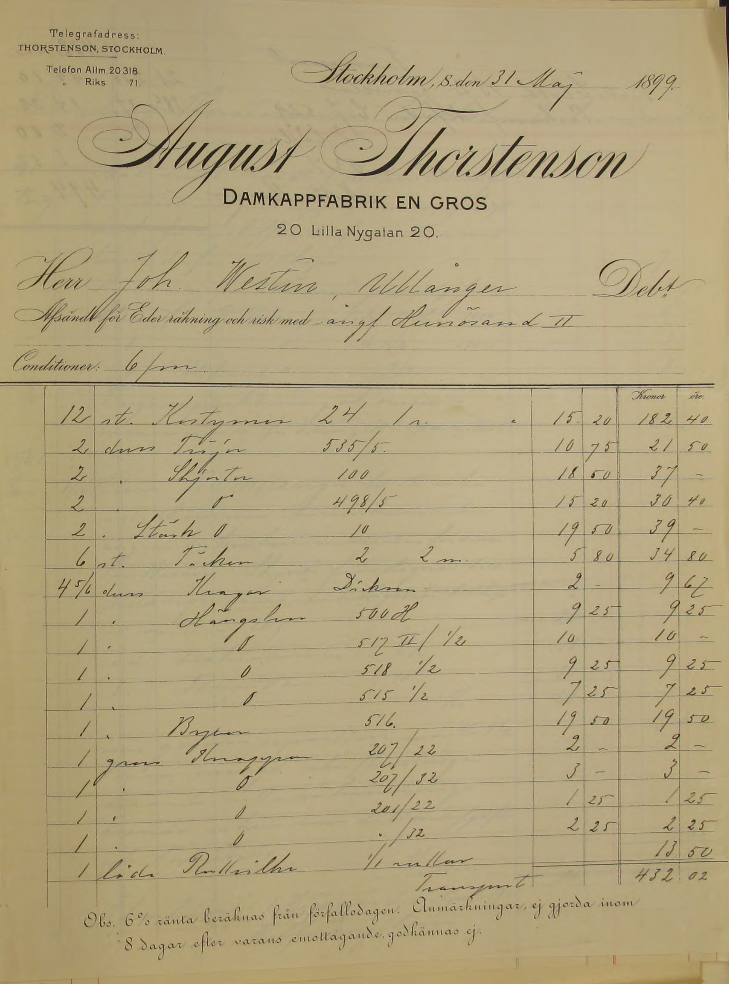 Telegrafadress:
THORSTENSON, STOCKHOLM.
Telefon Allm. 20318.
" Riks 71.
Stockholm, S. den 31 Maj 1899.
August Thorstenson
DAMKAPPFABRIK EN GROS
20 Lilla Nygatan 20.
Herr Joh. Westin, Ullånger Debt
Afsändt för Eder räkning och risk med ångf Hernösand II
Conditioner: 6/m.
Kronor öre
12 st. Kostymer 24 1 r. " 15 20 182 40
2 duss Tröjor 535/5. 10 75 21 50
2 " Skjortor 100 18 50 37 -
2 " O 498/5 15 20 30 40
2 " Stärk O 10 19 50 39 -
6 st. Täcken 2 2 m. 5 80 34 80
4 5/6 duss Kragar 2 - 9 67
1 " Hängslen 500 H 9 25 9 25
1 " O 517 II/ 1/2 10 10 -
1 " O 518 1/2 9 25 9 25
1 " O 515 1/2 7 25 7 25
1 " 516. 19 50 19 50
1 gross Knappar 207/22 2 - 2 -
1 " O 207/32 3 - 3 -
1 " O 201/22 1 25 1 25
1 " O "/32 2 25 2 25
1 låda 1/1 rullar 13 50
Transport 432 02
Obs. 6% ränta beräknas från förfallodagen. Anmärkningar, ej gjorda inom
8 dagar efter varans emottagande, godkännas ej.